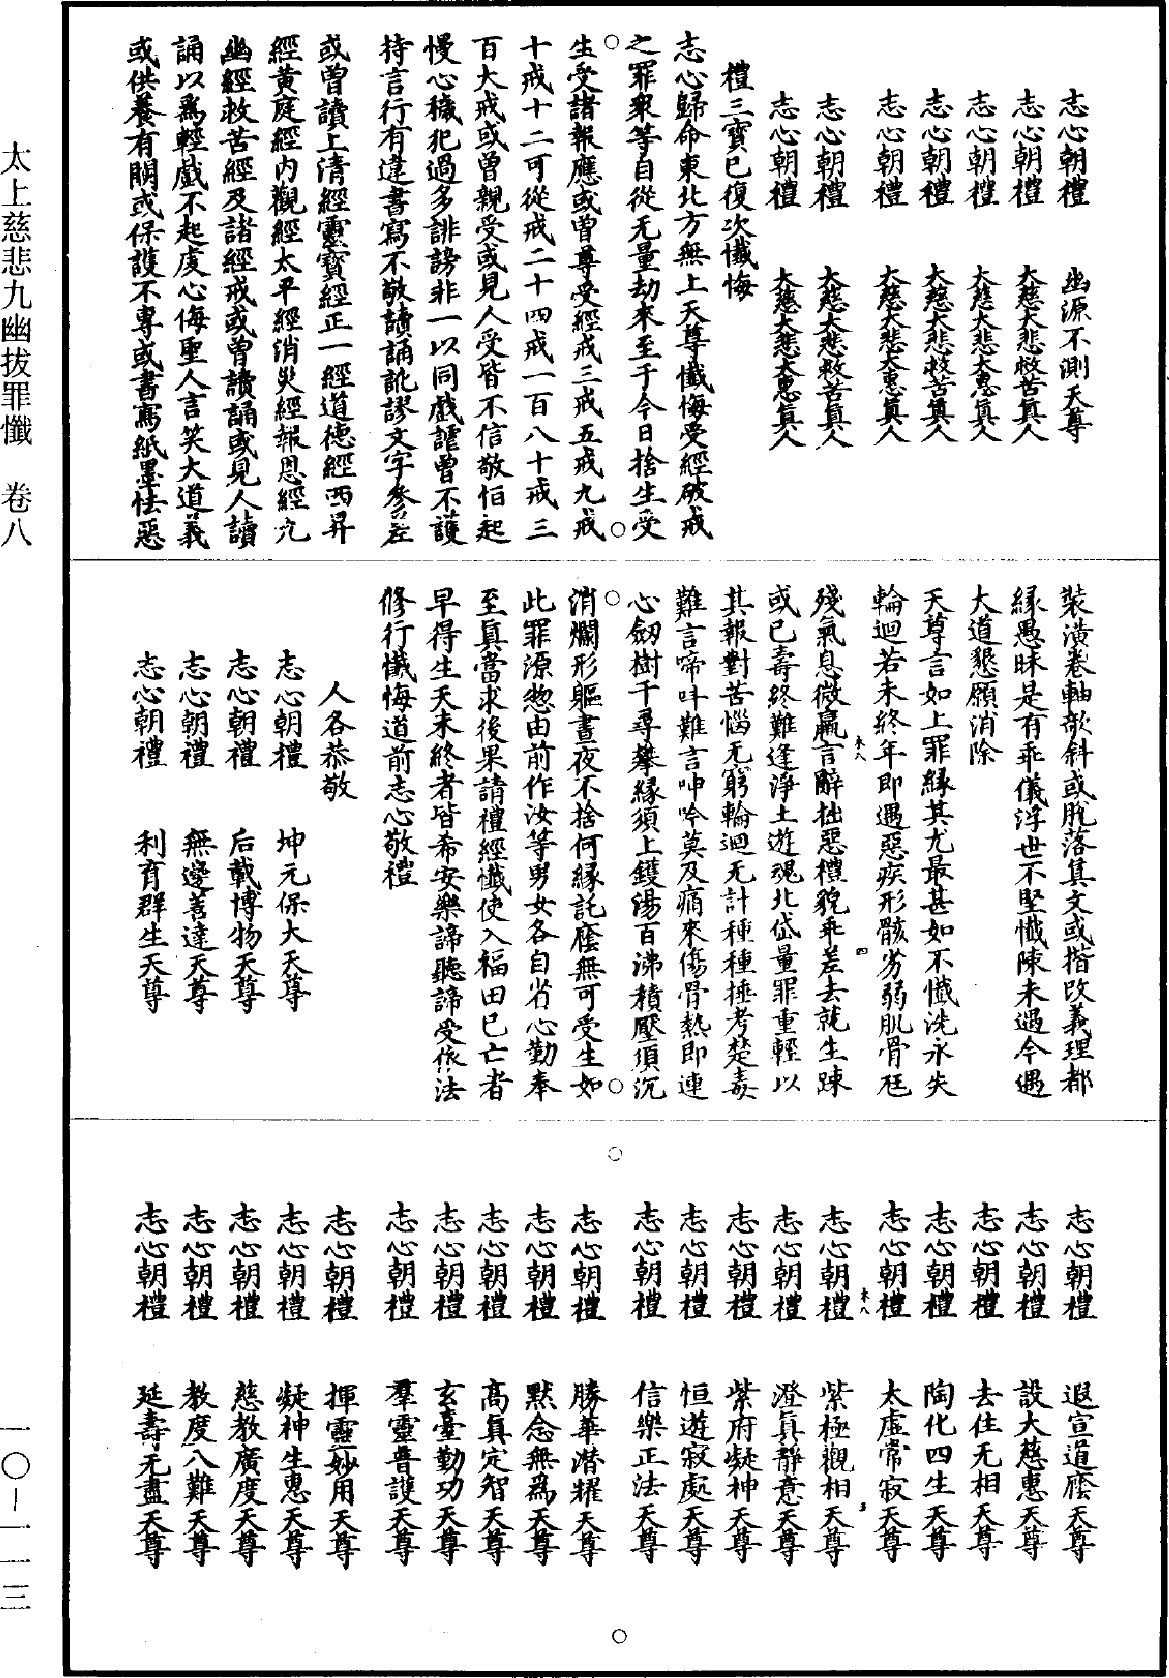 志心朝禮　幽源不測天尊
志心朝禮　大慈大悲救苦真人
志心朝禮　大慈大悲大惠真人
志心朝禮　大慈大悲救苦真人
志心朝禮　大慈大悲大惠真人
志心朝禮　大慈大悲救苦真人
志心朝禮　大慈大悲大惠真人
禮三寶已復次懺悔
志心歸命東北方無上天尊懺悔受經破戒
之罪衆等自從无量劫來至于今日捨生受
生受諸報應或曾尊受經戒三戒五戒九戒
十戒十二可從戒二十四戒一百八十戒三
百大戒或曾親受或見人受皆不信敬怕起
慢心穢犯過多誹謗非一以同戲謔曾不護
持言行有違書寫不敬讀誦訛謬文字參差
或曾讀上清經靈寶經正一經道德經西昇
經黃庭經內觀經太平經消災經報恩經九
幽經救苦經及諸經戒或曾讀誦或見人讀
誦以爲輕戲不起虔心侮聖人言笑大道義
或供養有闕或保護不專或書寫紙墨怯惡
裝潢卷軸欹斜或脫落真文或揩改義理都
緣愚昧是有乖儀浮世不堅懺陳未遇今遇
大道懇願消除
天尊言如上罪緣其尤最甚如不懺洗永失
輪迴若未終年即遇惡疾形骸劣弱肌骨尫
殘氣息微羸言辭拙惡禮貌乖差去就生踈
或已壽終難逢淨土遊魂北岱量罪重輕以
其報對苦惱无窮輪迴无計種種捶考楚毒
難言啼叫難言呻吟莫及痛來傷骨熱即連
心劒樹千尋攀緣須上鑊湯百沸積壓須沉
消爛形軀晝夜不捨何緣託廕無可受生如
此罪源惣由前作汝等男女各自省心勤奉
至真當求後果請禮經懺使入福田已亡者
早得生天未終者皆希安樂諦聽諦受依法
修行懺悔道前志心敬禮
人各恭敬
志心朝禮　坤元保大天尊
志心朝禮　后載博物天尊
志心朝禮　無邊善達天尊
志心朝禮　利育群生天尊
志心朝禮　遐宣道廕天尊
志心朝禮　設大慈惠天尊
志心朝禮　去住无相天尊
志心朝禮　陶化四生天尊
志心朝禮　太虛常寂天尊
志心朝禮　紫極觀相天尊
志心朝禮　澄真靜意天尊
志心朝禮　紫府凝神天尊
志心朝禮　恒遊寂處天尊
志心朝禮　信樂正法天尊
志心朝禮　勝華潛耀天尊
志心朝禮　默念無爲天尊
志心朝禮　高真定智天尊
志心朝禮　玄臺勤功天尊
志心朝禮　羣靈普護天尊
志心朝禮　揮靈妙用天尊
志心朝禮　凝神生惠天尊
志心朝禮　慈教廣度天尊
志心朝禮　教度八難天尊
志心朝禮　延壽无盡天尊
太上慈悲九幽拔罪懺　卷八
一〇—一一三